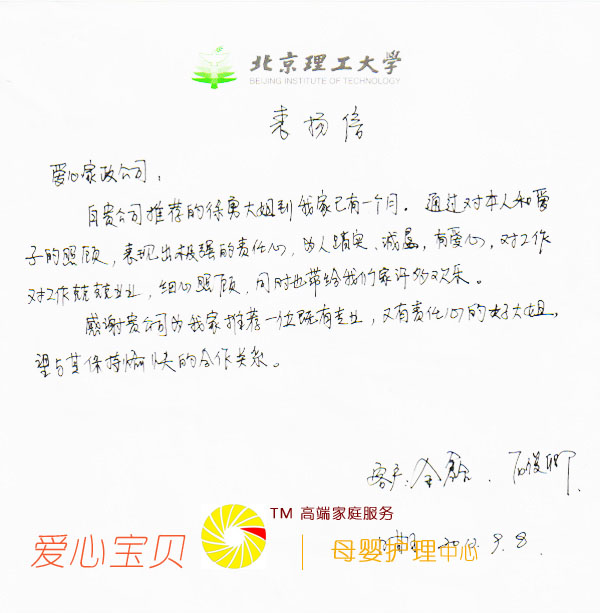 北京理工大学
BEIJING INSTITUTE OF TECHNOLOGY
表扬信
爱心家政公司:
自贵公司推荐的徐 大姐到我家已有一个月。通过对本人和爱
子的照顾,表现出极强的责任心,为人踏实、诚恳,有爱心,对工作
对工作兢兢业业,细心照顾,同时也带给我们家许多欢乐。
感谢贵公司为我家推荐一位既有专业,又有责任心的好大姐,
望与其保持愉快的合作关系。
客户:
TM 高端家庭服务
爱心宝贝
母婴护理中心
9.8.